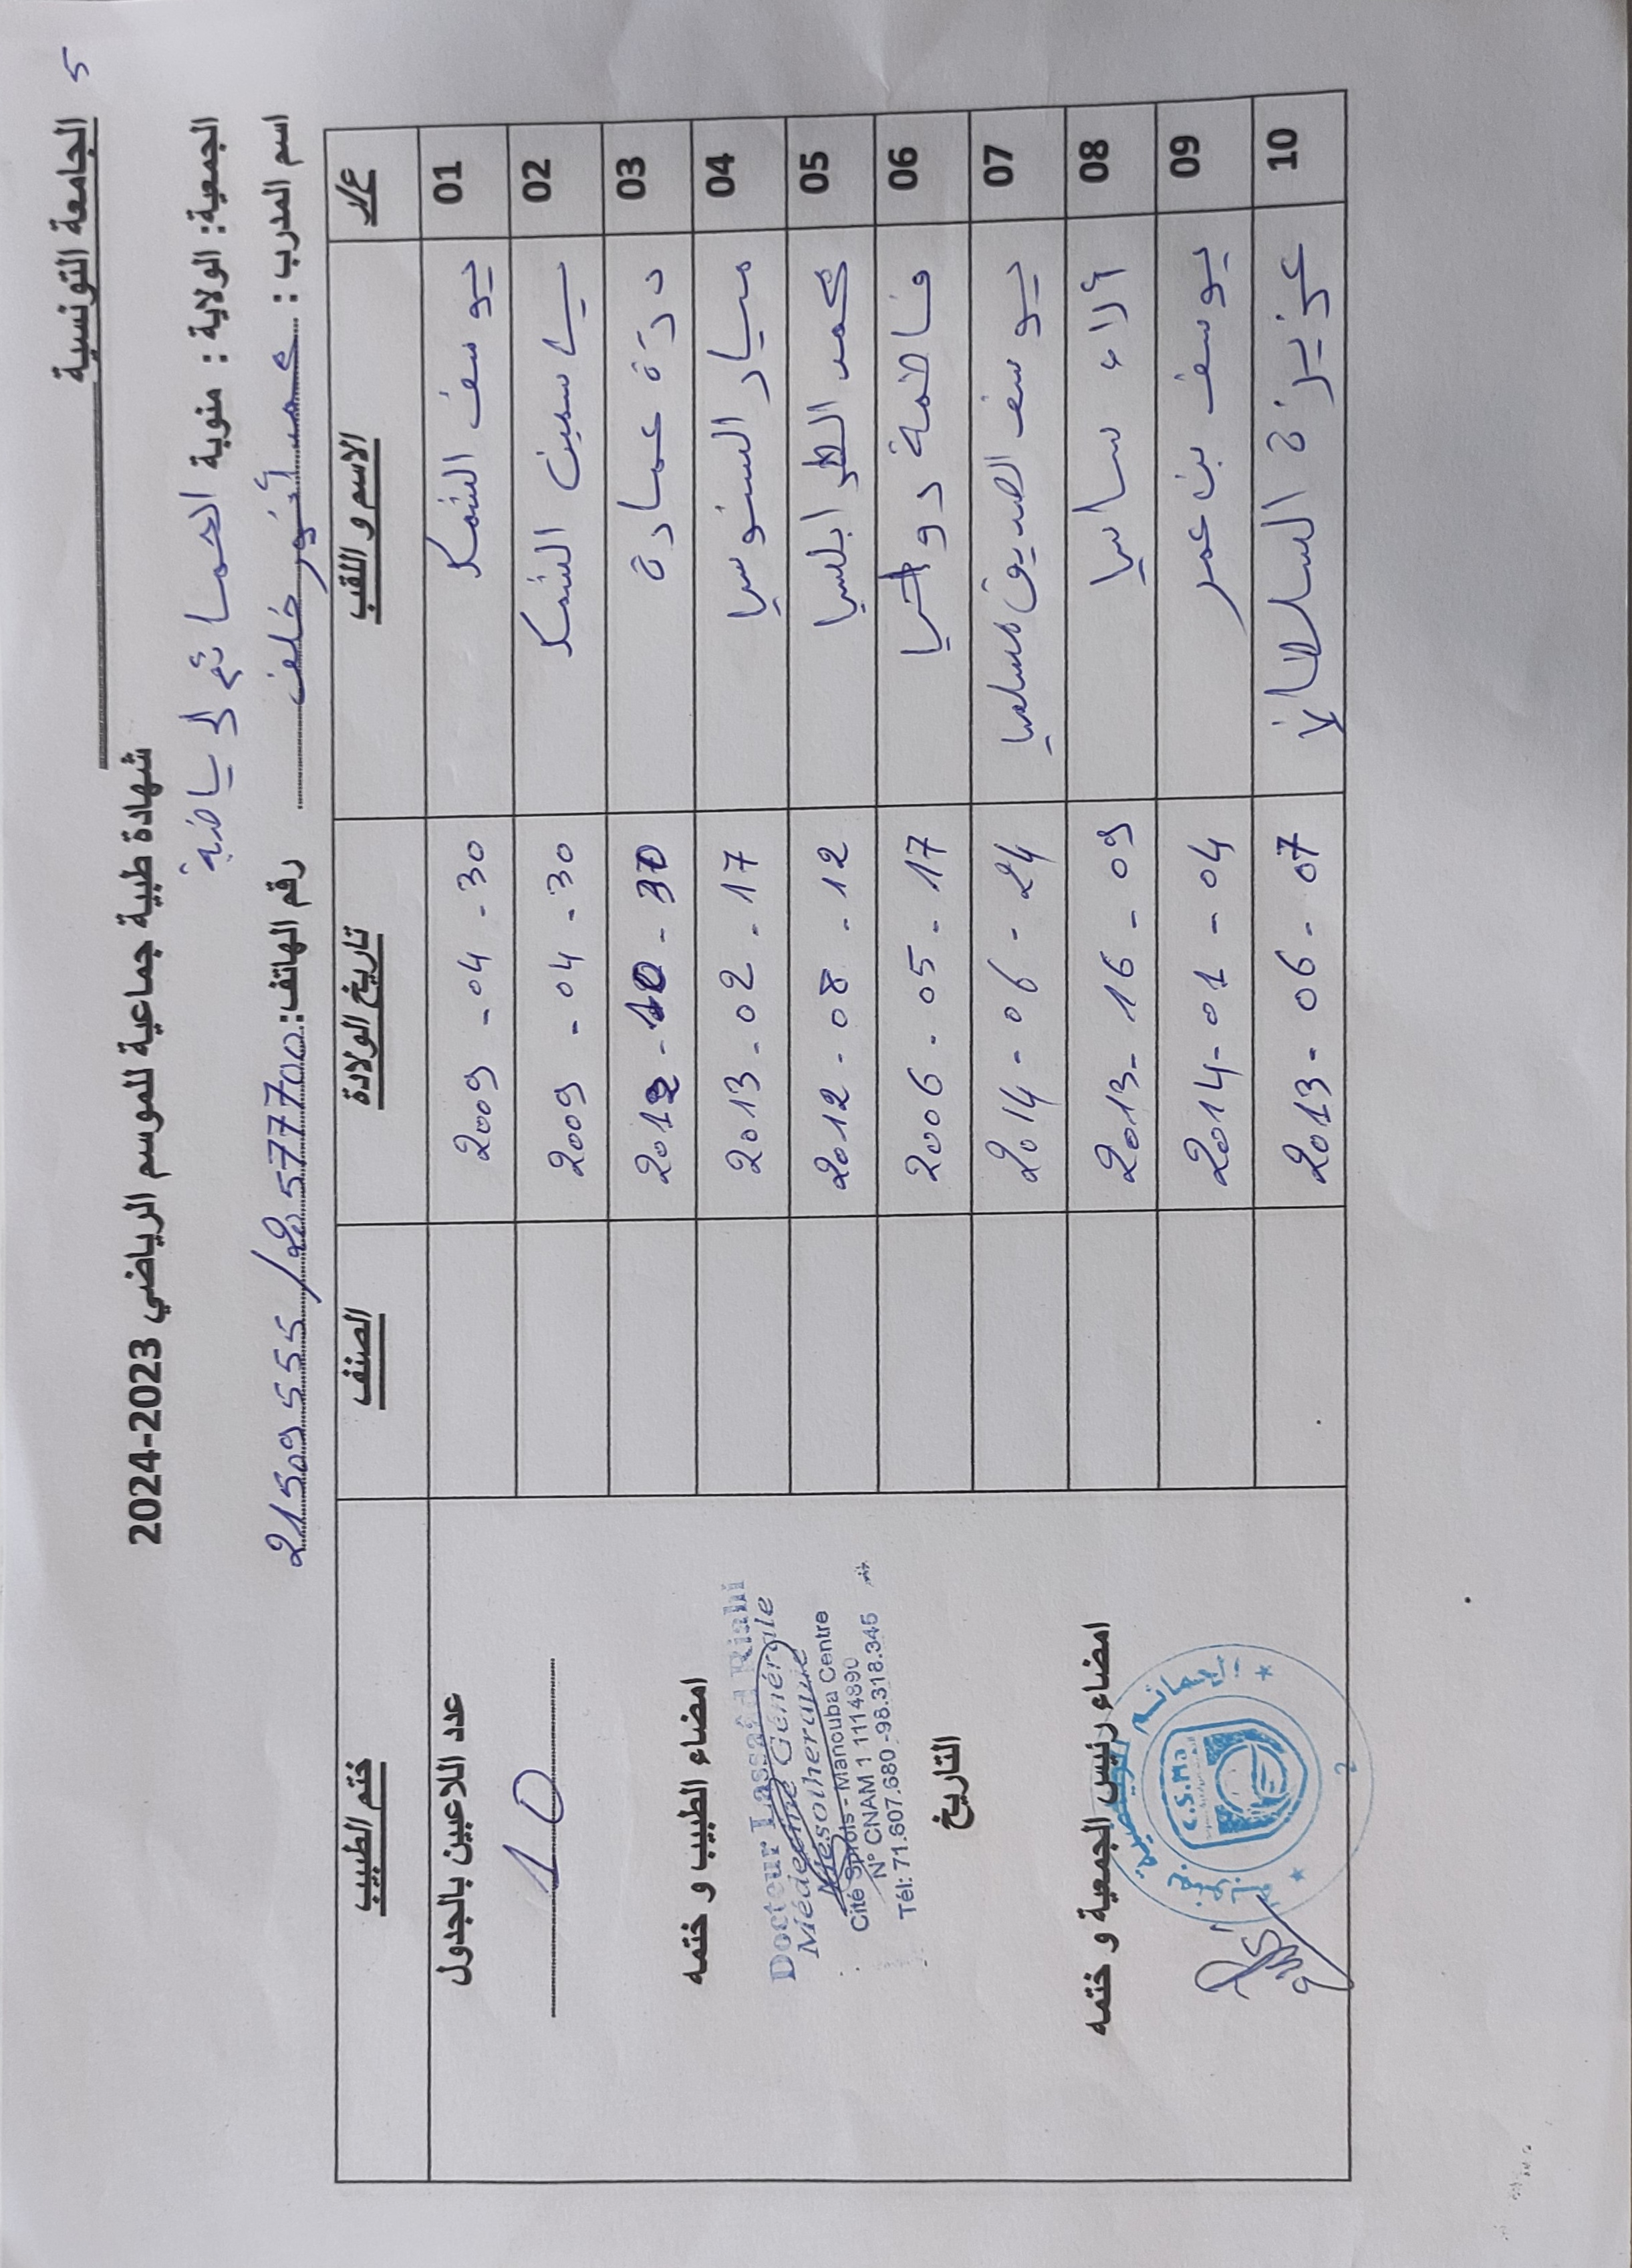 5
الجامعة التونسية
شهادة طبية جماعية للموسم الرياضي 2023-2024
الجمعية: الولاية : منوبة الحمائم الرياضية
اسم المدرب : محمد أنور خلف رقم الهاتف: 21509555 / 20577700
ع/ر الاسم و اللقب تاريخ الولادة الصنف ختم الطبيب
01 يوسف الشمك 2009 - 04 - 30
02 ياسمين الشمك 2009 - 04 - 30
03 درة عمادة
04 ميار السنوسي 2013 - 02 - 17
05 محمد الطرابلسي 2012 - 08 - 12
06 فاطمة 2006 - 05 - 17
07 يوسف الصديق 2014 - 06 - 24
08 ألاء ساسي 2013 - 16 - 09
09 يوسف بن عمر 2014 - 01 - 04
10 عزيزة السلطاني 2013 - 06 - 07
عدد اللاعبين بالجدول
10
امضاء الطبيب و ختمه
Docteur Lassaâd Riahi
Médecine Générale
Mesotherapie
Cité Sprols - Manouba Centre
N° CNAM 1 1114890
Tél: 71.607.680 - 98.318.345
التاريخ
امضاء رئيس الجمعية و ختمه
C.S.Ma